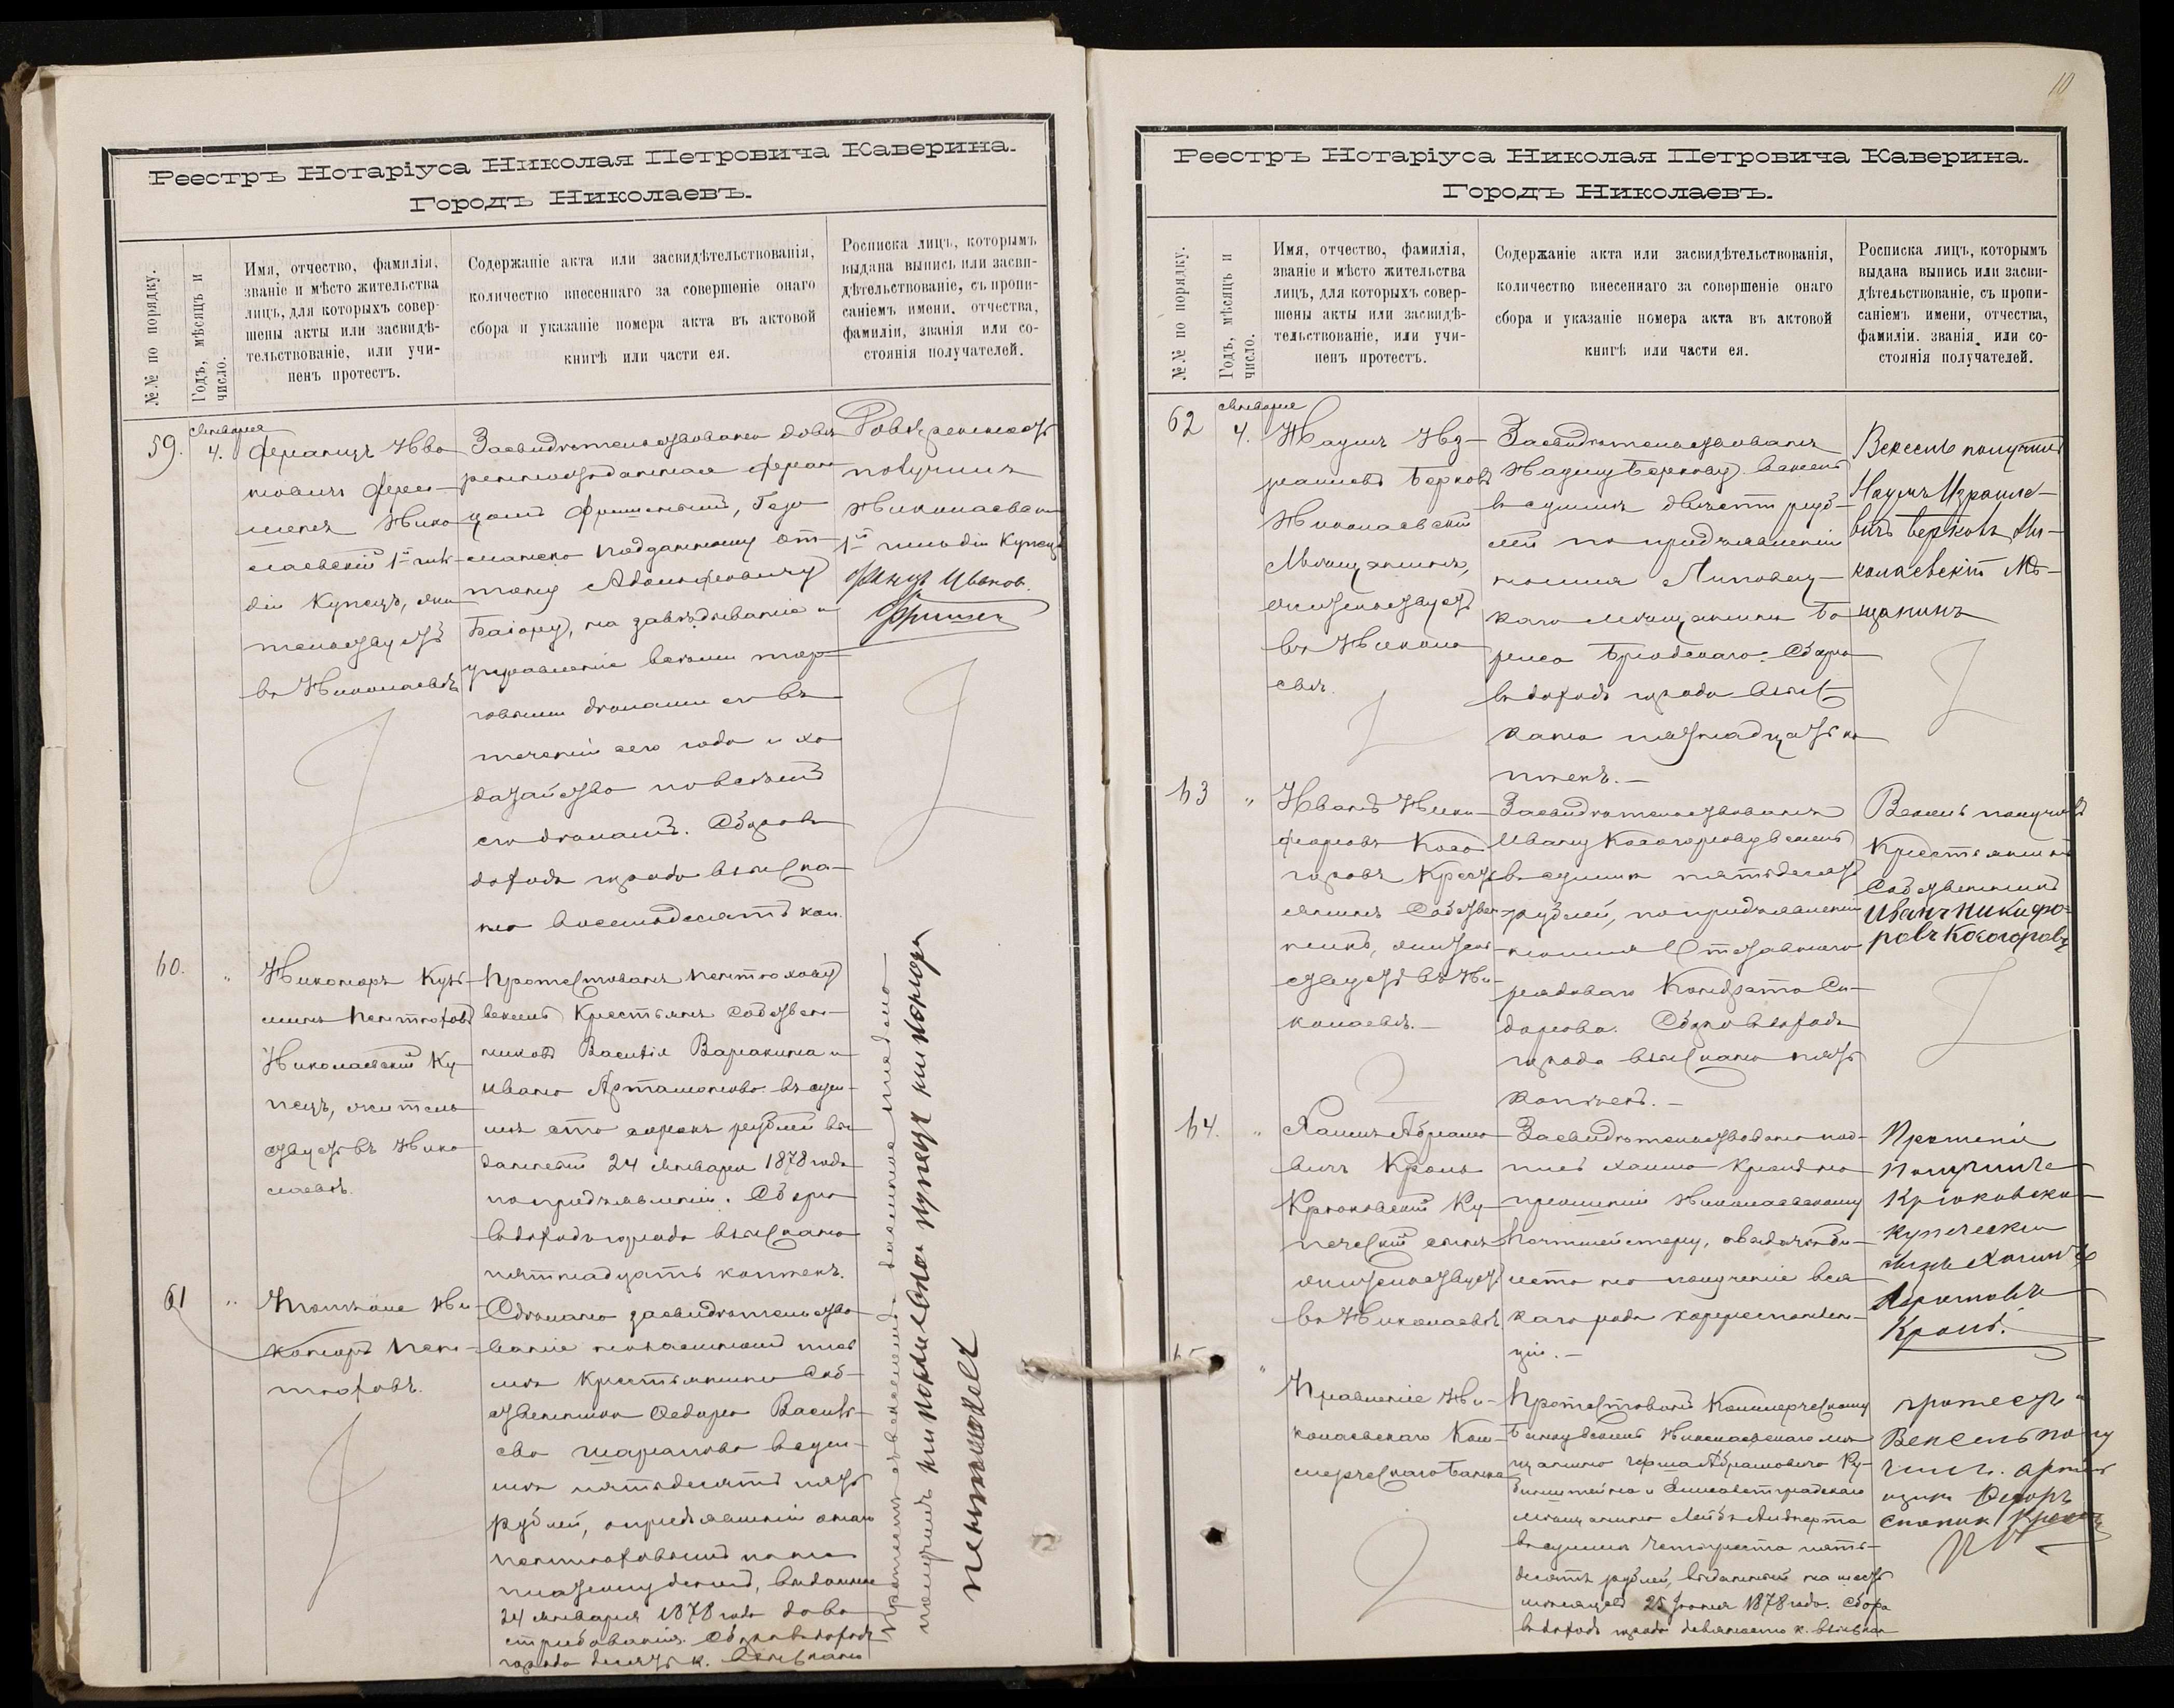 Реестръ Нотаріуса Николая Петровича Каверина.
Городъ Николаевъ.
№№ по порядку.
Годъ, мѣсяцъ и
число.
Имя, отчество, фамилія,
званіе и мѣсто жительства
лицъ, для которыхъ совер-
шены акты или засвидѣ-
тельствованіе, или учи-
ненъ протестъ.
Содержаніе акта или засвидѣтельствованія,
количество внесеннаго за совершеніе онаго
сбора и указаніе номера акта въ актовой
книгѣ или части ея.
Росписка лицъ, которымъ
выдана выпись или засви-
дѣтельствованіе, съ пропи-
саніемъ имени, отчества,
фамиліи, званія или со-
стоянія получателей.
59.
Января
4.
Францъ Ива
новичъ
Нико
лаевскій 1й гиль
діи Купецъ, жи
тельствуетъ
въ Николаевѣ
Засвидѣтельствована довѣ
ренность данная Фран
цомъ Фришеномъ, Гер
манско подданному От
тону Адольфовичу
на завѣдываніе и
управленіе всѣми тор
говыми дѣлами его въ
теченіи сего года и хо
датайство по всѣмъ
его дѣламъ. Сборъ въ
доходъ города взыска-
но восемьдесятъ коп.
Довѣренность
получилъ
Николаевскій
1й гильдіи Купецъ
Францъ Иванов.
Фришен
60.
"
Никоноръ Кузь-
минъ Пентюховъ
Николаевскій Ку-
пецъ, житель
ствуетъ въ Нико
лаевѣ.
Протестованъ Пентюхову
вексель Крестьянъ Собствен-
никовъ Василія Варакина и
Ивана Артамонова въ сум-
мѣ сто сорокъ рублей вы
данный 24 Января 1878 года
по предъявленіи. Сбора
въ доходъ города взыскано
пятнадцать копѣекъ.
61
"
Купецъ Ни-
каноръ Пен-
тюховъ.
Сдѣлано засвидѣтельство
ваніе на заемномъ пись
мѣ Крестьянина Соб-
ственника Федора Василь-
ева Шарапова въ сум-
мѣ пятьдесятъ пять
рублей, о предъявленіи онаго
Пентюховымъ ко
платежу выданное
24 Января 1878 года до во
стребованія. Сборъ въ доходъ
города десять к. взыскано
Протестъ съ векселемъ и заемное письмо
получилъ николаевскій купецъ никоноръ
пентюховъ
10
Реестръ Нотаріуса Николая Петровича Каверина.
Городъ Николаевъ.
№№ по порядку.
Годъ, мѣсяцъ и
число.
Имя, отчество, фамилія,
званіе и мѣсто жительства
лицъ, для которыхъ совер-
шены акты или засвидѣ-
тельствованіе, или учи-
ненъ протестъ.
Содержаніе акта или засвидѣтельствованія,
количество внесеннаго за совершеніе онаго
сбора и указаніе номера акта въ актовой
книгѣ или части ея.
Росписка лицъ, которымъ
выдана выпись или засви-
дѣтельствованіе, съ пропи-
саніемъ имени, отчества,
фамиліи. званія или со-
стоянія получателей.
62
Января
4.
Наумъ Из-
раилевъ Берковъ
Николаевскій
Мѣщанинъ,
жительствуетъ
въ Никола
евѣ.
Засвидѣтельствованъ
Науму Беркову вексель
въ суммѣ двѣсти руб-
лей по предъявленіи
Липовец-
каго мѣщанина Бо
риса Бродскаго. Сбора
въ доходъ города взыс-
кано пятнадцать ко
пѣекъ.
Вексель получилъ
Наумъ Израиле-
вичъ Берковъ Ни-
колаевскій Мѣ-
щанинъ
63
"
Иванъ Ники-
форовъ Косо
горовъ Кресть
янинъ Собствен-
никъ, житель-
ствуетъ въ Ни-
колаевѣ.
Засвидѣтельствованъ
Ивану Косогорову вексель
въ суммѣ пятьдесятъ
рублей, по предъявленіи
отставнаго
рядоваго Кондрата Си-
дорова. Сбора въ доходъ
города взыскано пять
копѣекъ.
Вексель получилъ
Крестьянинъ
Собственникъ
Иванъ Никифо-
ровъ Косогоровъ
64.
"
Хаимъ Абрамо
вичъ Кроль
Крюковскій Ку-
печескій сынъ
жительствуетъ
въ Николаевѣ.
Засвидѣтельствована под-
пись Хаима Кроля на
прошеніи Николаевскому
Почтмейстеру, о выдачѣ би-
лета на полученіе вся
каго рода корреспонден-
ціи.
Прошеніе
получилъ
Крюковски
купечески
сынъ Хаимъ
Абрамовъ
Кроль.
65
"
Правленіе Ни-
колаевскаго Ком-
мерческаго банка
Протестованъ Коммерческому
банку вексель Николаевскаго мѣ
щанина Герша Абрамовича Ру-
бинштейна и Елисаветградскаго
мѣщанина
въ суммѣ четыреста пять-
десятъ рублей, выданный на шесть
мѣсяцевъ 25 Іюня 1878 года. Сбора
въ доходъ города девяносто к. взыскано
протестъ и
Вексель полу
чилъ. артель
щикъ Федоръ